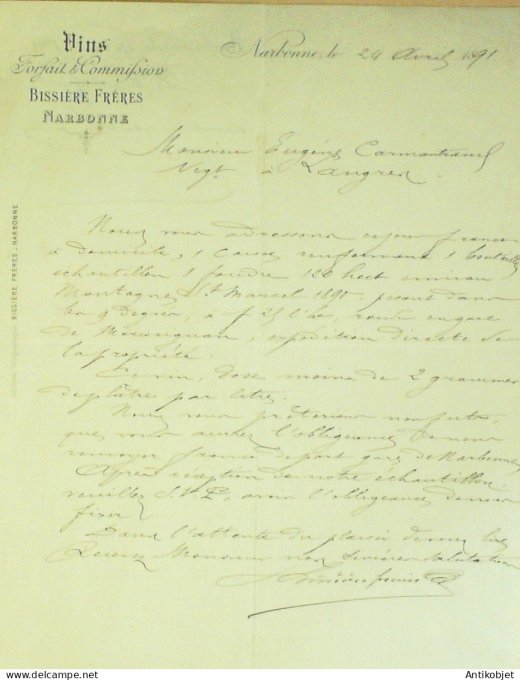 Vins
Forfait & Commission
BISSIÈRE FRÈRES
NARBONNE
Narbonne, le 24 Avril 1891
Monsieur Eugène
Négt. à Langres.
Nous vous adressons ce jour franco
à domicile, 1 caisse renfermant 1 bouteille
échantillon 1 foudre 120 hect environ
Montagne St Marcel 1890, pesant dans
les 9 Degrés à f 25 l'ho, rendu en gare
de Marcorignan, expédition directe de
la propriété.
Ce vin, dose moins de 2 grammes
de plâtre par litre.
Nous vous prêterions nos futs,
que vous auriez l'obligeance de nous
renvoyer franco de port gare de Narbonne
Après réception de notre échantillon
veuillez S.V.P, avoir l'obligeance de nous
fixer
Dans l'attente du plaisir de vous lire
Recevez Monsieur nos Sincères Salutations
Bissière frères
BISSIÈRE FRÈRES - NARBONNE
Antikobjet